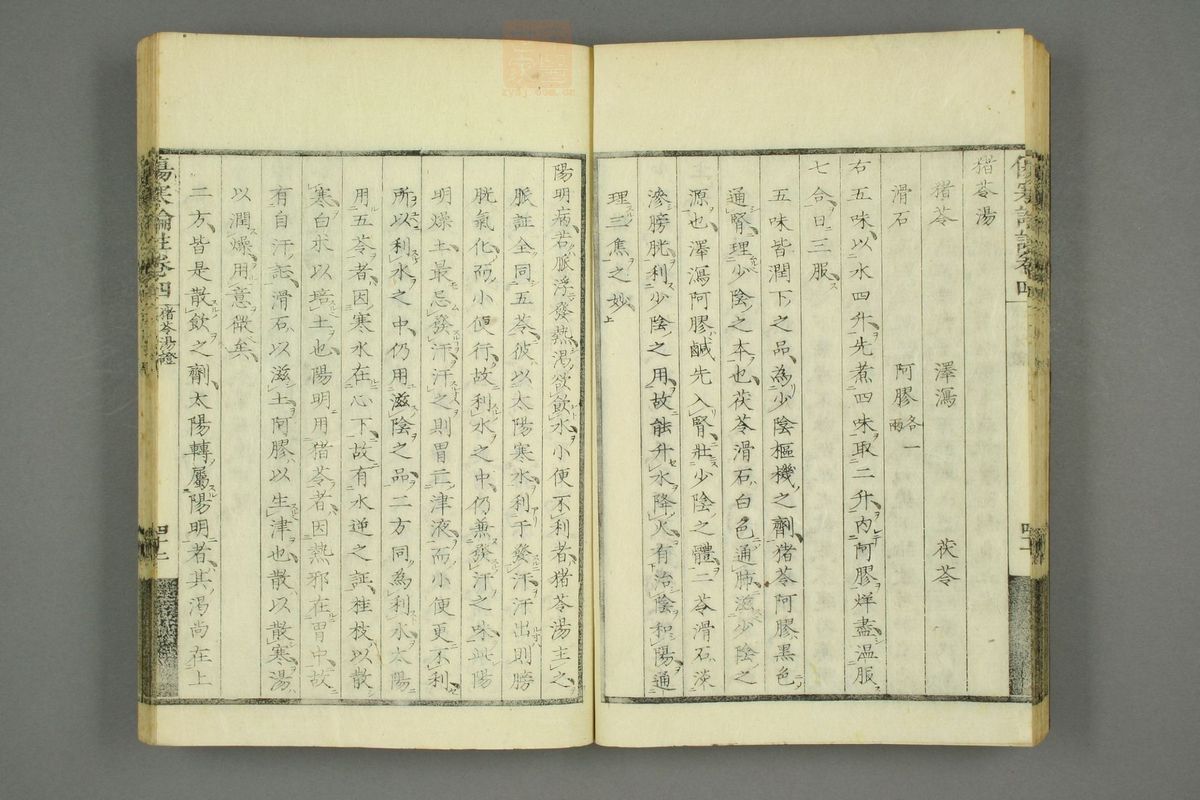 猪苓湯
猪苓　澤瀉　茯苓
滑石　阿膠各一兩
右五味以水四升先煮四味取二升內阿膠烊盡温服
七合日三服
五味皆潤下之品為少陰樞機之劑猪苓阿膠黑色
通腎理少陰之本也茯苓滑石白色通肺滋少陰之
源也澤瀉阿膠鹹先入腎壯少陰之體二苓滑石
滲膀胱利少陰之用故能升水降火有治陰和陽通
理三焦之妙
陽明病若脈浮發熱渴欲飲水小便不利者猪苓湯主之
脈証全同五苓彼以太陽寒水利于發汗汗出則膀
胱氣化而小便行故利水之中仍兼發汗之味此陽
明燥土最忌發汗汗之則胃亡津液而小便更不利
所以利水之中仍用滋陰之品二方同為利水太陽
用五苓者因寒水在心下故有水逆之証桂枝以散
寒白朮以培土也陽明用猪苓者因熱邪在胃中故
有自汗証滑石以滋土阿膠以生津也散以散寒湯
以潤燥用意微矣
二方皆是散飲之劑太陽轉屬陽明者其渴尚在上
傷寒論註卷四
猪苓湯證